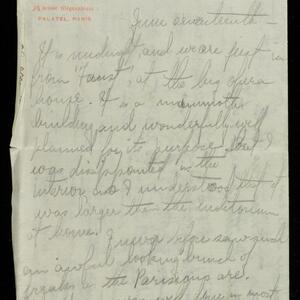 PALATEL, PARIS
June seventeenth -
It is midnight and we are just in
from "Faust" at the big opera
house. It is a mammoth
building and wonderfully well
planned for its purpose but I
was disappointed in the
interior and I understood that it
was larger than the Auditorium
at home. I never before saw such
an awful looking bunch of
people as the Parisians are.